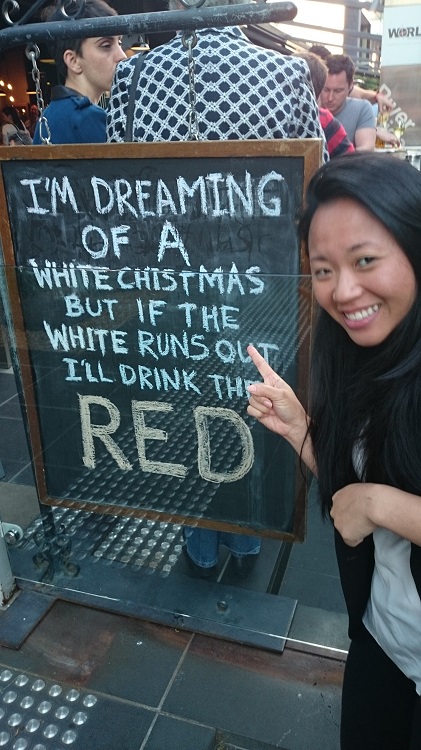 WORL
I'M DREAMING
OF A
WHITE CHISTMAS
BUT IF THE
WHITE RUNS OUT
I'LL DRINK THE
RED